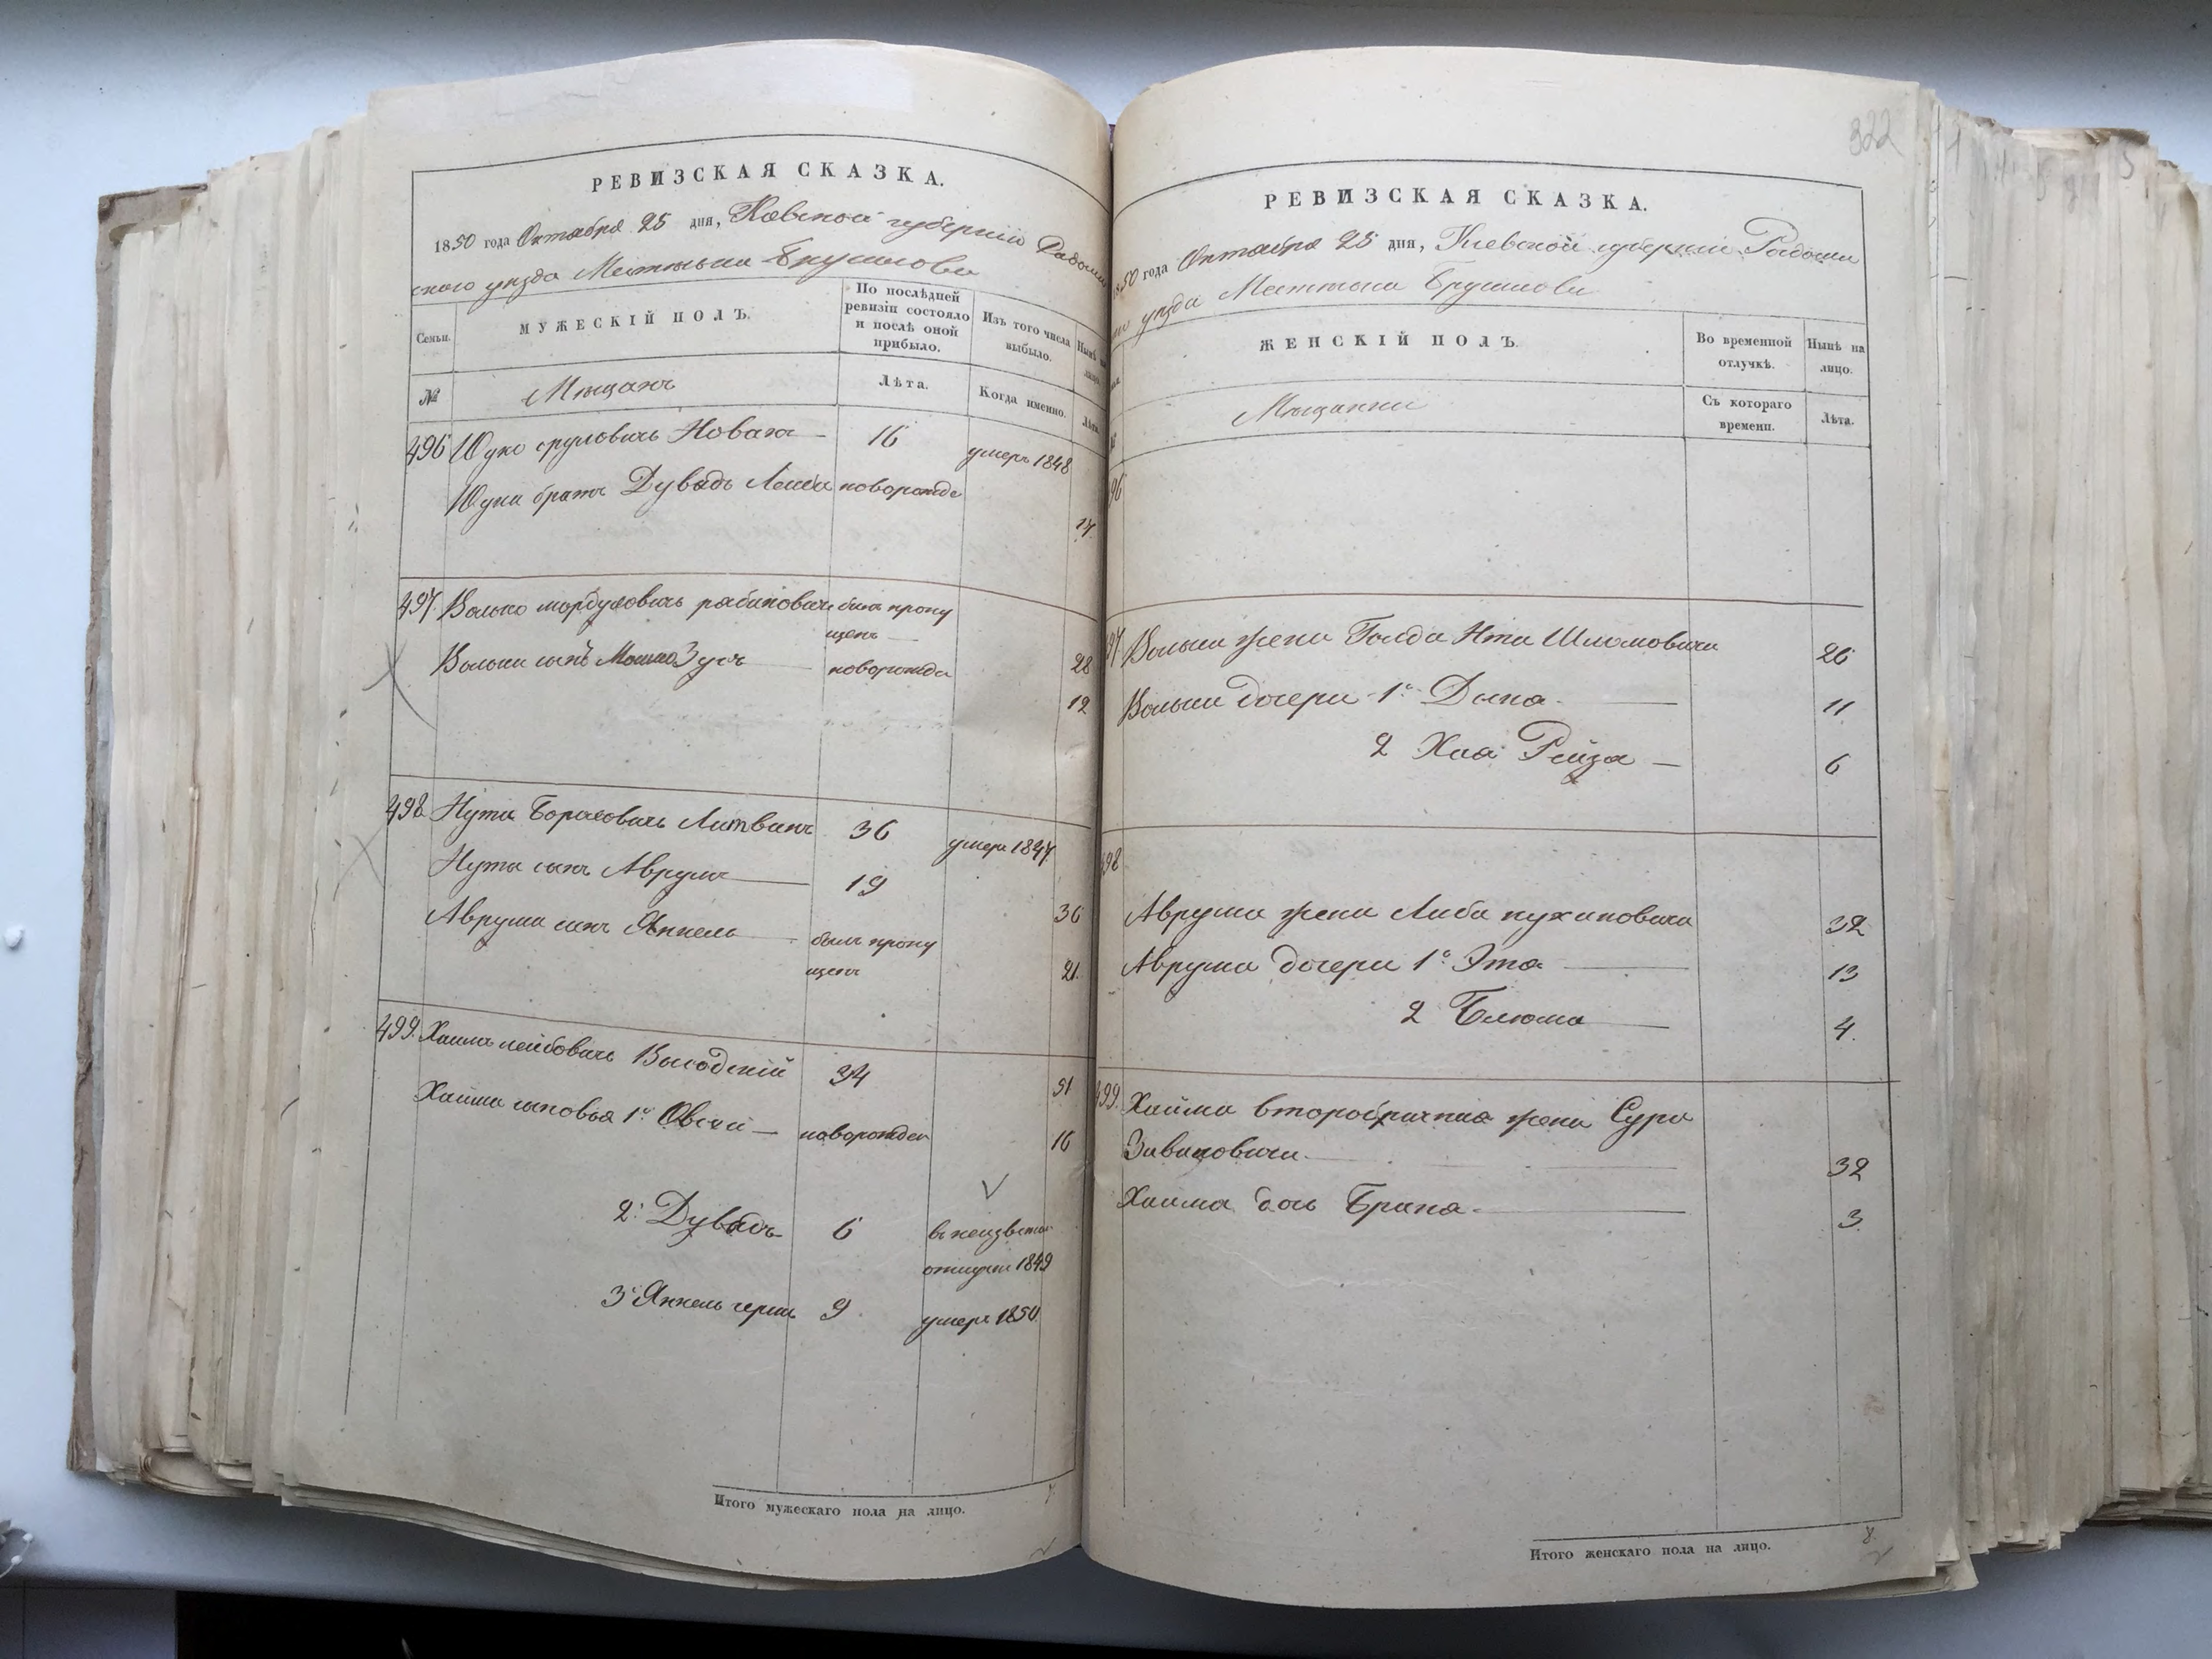 РЕВИЗСКАЯ СКАЗКА.
1850 года Октября 25 дня, Киевской губернии Радомы
скаго уезда Местечка Брусилова
Семьи.
МУЖЕСКІЙ ПОЛЪ.
По послѣдней ревизіи состояло и послѣ оной прибыло.
Изъ того числа выбыло.
Нынѣ на лицо.
№
Мещанъ
Лѣта.
Когда именно.
Лѣта.
496 Юко сруловичь Новакъ 16 умеръ 1848
Юки братъ Дувидъ Лейба новорожде 17
497. Волько мордуховичь рабиновичь былъ пропу
щенъ 28
Вольки сынъ Мошко Зусь новорожде 12
498. Нута Бороховичь Литвинъ 36 умеръ 1847.
Нута сынъ Аврумъ 19 36
Аврума сынъ Янкель былъ пропу
щенъ 21.
499. Хаимъ лейбовичь Высодскій 34 51
Хаима сыновья 1й Овсей новорожден 16
2й Дувидъ 6 в неизвестн
отлучки 1849
3й Янкель герш 9 умеръ 1850
Итого мужескаго пола на лицо.
7
322
РЕВИЗСКАЯ СКАЗКА.
1850 года Октября 25 дня, Киевской губерніи Радомы
уезда Местечка Брусилова
ЖЕНСКІЙ ПОЛЪ.
Во временной отлучкѣ.
Нынѣ на лицо.
Мещанки
Съ котораго времени.
Лѣта.
96
97 Вольки жена Голда Ита Шломовича 26
Вольки дочери 1я Дына 11
2 Хая Рейза 6
498
Аврума жена Либа нухимовича 32
Аврума дочери 1я Эта 13
2 Блюма 4.
499. Хаима второбрачная жена Сура
32
Хаима дочь Брана 3.
Итого женскаго пола на лицо.
8